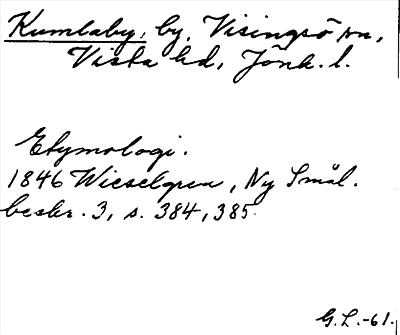 Kumlaby, by, Visingsö sn,
Vista hd, Jönk. l.
Etymologi.
1846 Wieselgren, Ny Smål.
beskr. 3, s. 384, 385.
G.L.-61.